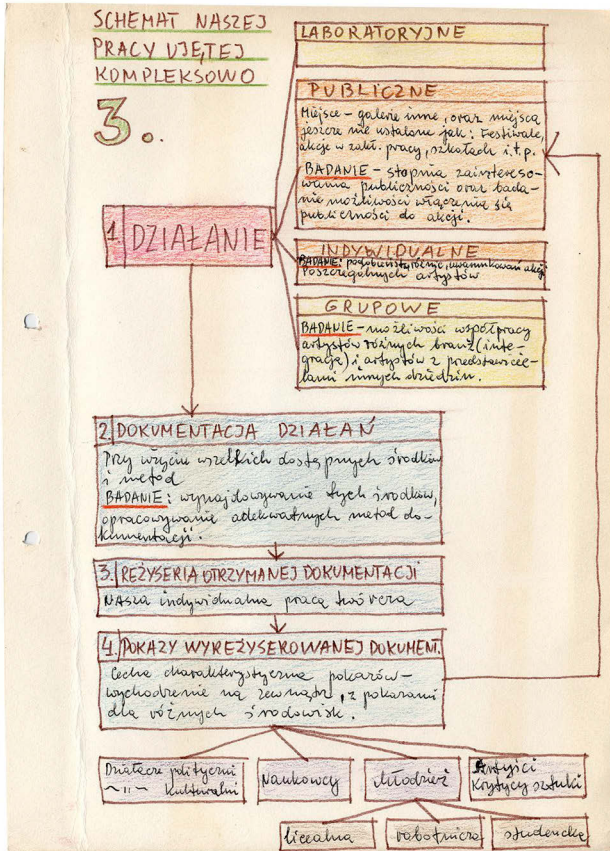 SCHEMAT NASZEJ
PRACY UJĘTEJ
KOMPLEKSOWO
3.
LABORATORYJNE
PUBLICZNE
Miejsce – galerie inne, oraz miejsca
jeszcze nie ustalone jak: Festiwale,
akcje w zakł. pracy, szkołach i.t.p.
BADANIE – stopnia zainstereso-
wania publiczności oraz bada-
nie możliwości włączenia się
publiczności do akcji.
1. DZIAŁANIE
INDYWIDUALNE
BADANIE: podobieństw, różnic, uwarunkowań akcji
Poszczególnych artystów
GRUPOWE
BADANIE – możliwości współpracy
artystów różnych branż (inte-
gracja) i artystów z przedstawicie-
lami innych dziedzin.
2. DOKUMENTACJA DZIAŁAŃ
Przy użyciu wszelkich dostępnych środków
i metod
BADANIE: wynajdowywanie tych środków,
opracowywanie adekwatnych metod do-
kumentacji.
3. REŻYSERIA OTRZYMANEJ DOKUMENTACJI
Nasza indywidualna praca twórcza
4. POKAZY WYREŻYSEROWANEJ DOKUMENT.
Cecha charakterystyczna pokazów –
wychodzenie na zewnątrz, z pokazami
dla różnych środowisk.
Działacze polityczni
~ " ~ Kulturalni
Naukowcy
Młodzież
Artyści
Krytycy sztuki
licealna
robotnicza
studencka